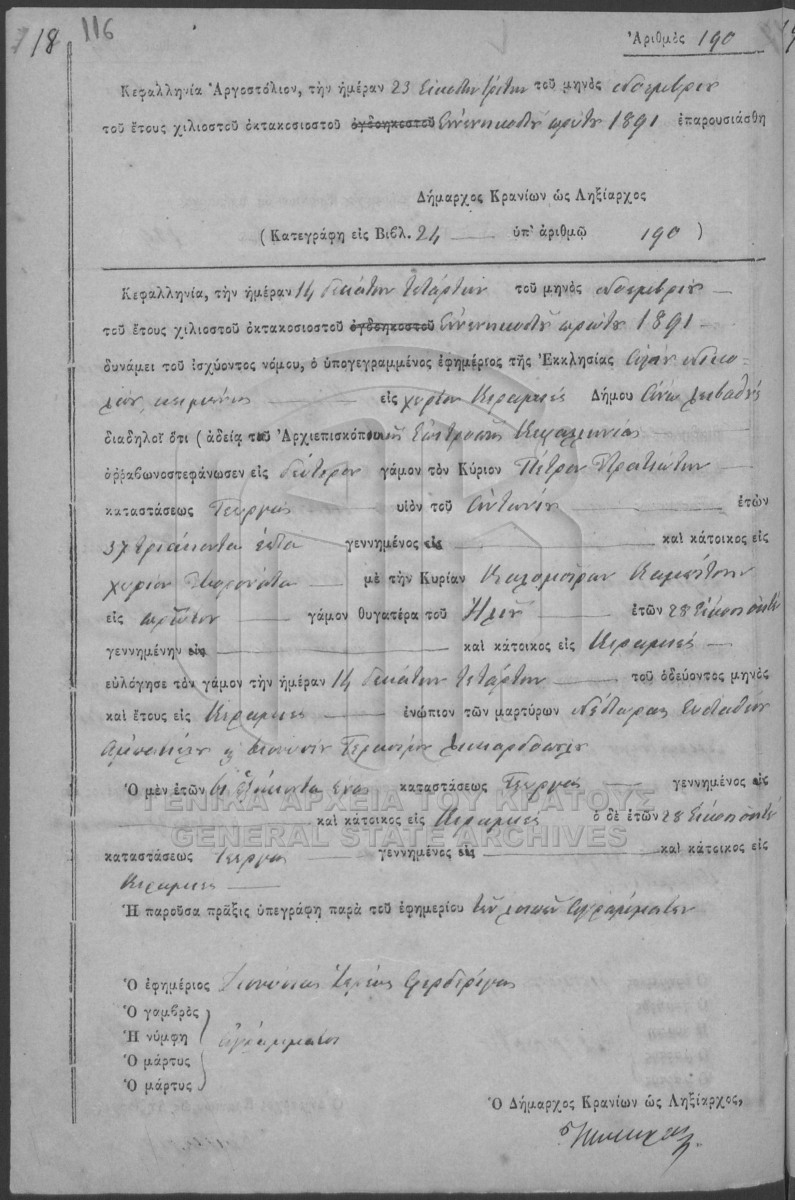 18 116
Ἀριθμὸς 190
Κεφαλληνία Ἀργοστόλιον, τὴν ἡμέραν 23 Εἰκοστὴν τρίτην τοῦ μηνὸς Νοεμβρίου
τοῦ ἔτους χιλιοστοῦ ὀκτακοσιοστοῦ ὀγδοηκοστοῦ Ἐννενηκοστοῦ πρώτου 1891 ἐπαρουσιάσθη
Δήμαρχος Κρανίων ὡς Ληξίαρχος
(Κατεγράφη εἰς Βιβλ. 24 ὑπ' ἀριθμῷ 190)
Κεφαλληνία, τὴν ἡμέραν 14 δεκάτην τετάρτην τοῦ μηνὸς Νοεμβρίου
τοῦ ἔτους χιλιοστοῦ ὀκτακοσιοστοῦ ὀγδοηκοστοῦ Ἐννενηκοστοῦ πρώτου 1891
δυνάμει τοῦ ἰσχύοντος νόμου, ὁ ὑπογεγραμμένος ἐφημέριος τῆς Ἐκκλησίας Ἁγίου Νικο-
λάου, κειμένης εἰς χωρίον Κεραμιές Δήμου Ἄνω Λειβαθοῦς
διαδηλοῖ ὅτι (ἀδείᾳ τοῦ Ἀρχιεπισκόπου κῆς Ἐπιτροπῆς Κεφαλληνίας
ἀρραβωνοστεφάνωσεν εἰς δεύτερον γάμον τὸν Κύριον Πέτρον
καταστάσεως Γεωργὸς υἱὸν τοῦ Ἀντωνίου ἐτῶν
37 τριάκοντα ἑπτὰ γεννημένος εἰς καὶ κάτοικος εἰς
χωρίον μὲ τὴν Κυρίαν Καλομοίραν
εἰς πρῶτον γάμον θυγατέρα τοῦ Ἠλία ἐτῶν 28 εἴκοσι ὀκτώ
γεννημένην εἰς καὶ κάτοικος εἰς Κεραμιές
εὐλόγησε τὸν γάμον τὴν ἡμέραν 14 δεκάτην τετάρτην τοῦ ὁδεύοντος μηνὸς
καὶ ἔτους εἰς Κεραμιές ἐνώπιον τῶν μαρτύρων Εὐσταθίου
Διονυσίου Γερασίμου
Ὁ μὲν ἐτῶν 61 ἑξήκοντα ἕνα καταστάσεως Γεωργὸς γεννημένος εἰς
καὶ κάτοικος εἰς Κεραμιές ὁ δὲ ἐτῶν 28 εἴκοσι ὀκτώ
καταστάσεως Γεωργὸς γεννημένος εἰς καὶ κάτοικος εἰς
Κεραμιές
Ἡ παροῦσα πρᾶξις ὑπεγράφη παρὰ τοῦ ἐφημερίου τῶν λοιπῶν ἀγραμμάτων
Ὁ ἐφημέριος Διονύσιος Ἱερεὺς
Ὁ γαμβρὸς
Ἡ νύμφη ἀγράμματοι
Ὁ μάρτυς
Ὁ μάρτυς
Ὁ Δήμαρχος Κρανίων ὡς Ληξίαρχος,
ΓΕΝΙΚΑ ΑΡΧΕΙΑ ΤΟΥ ΚΡΑΤΟΥΣ
GENERAL STATE ARCHIVES